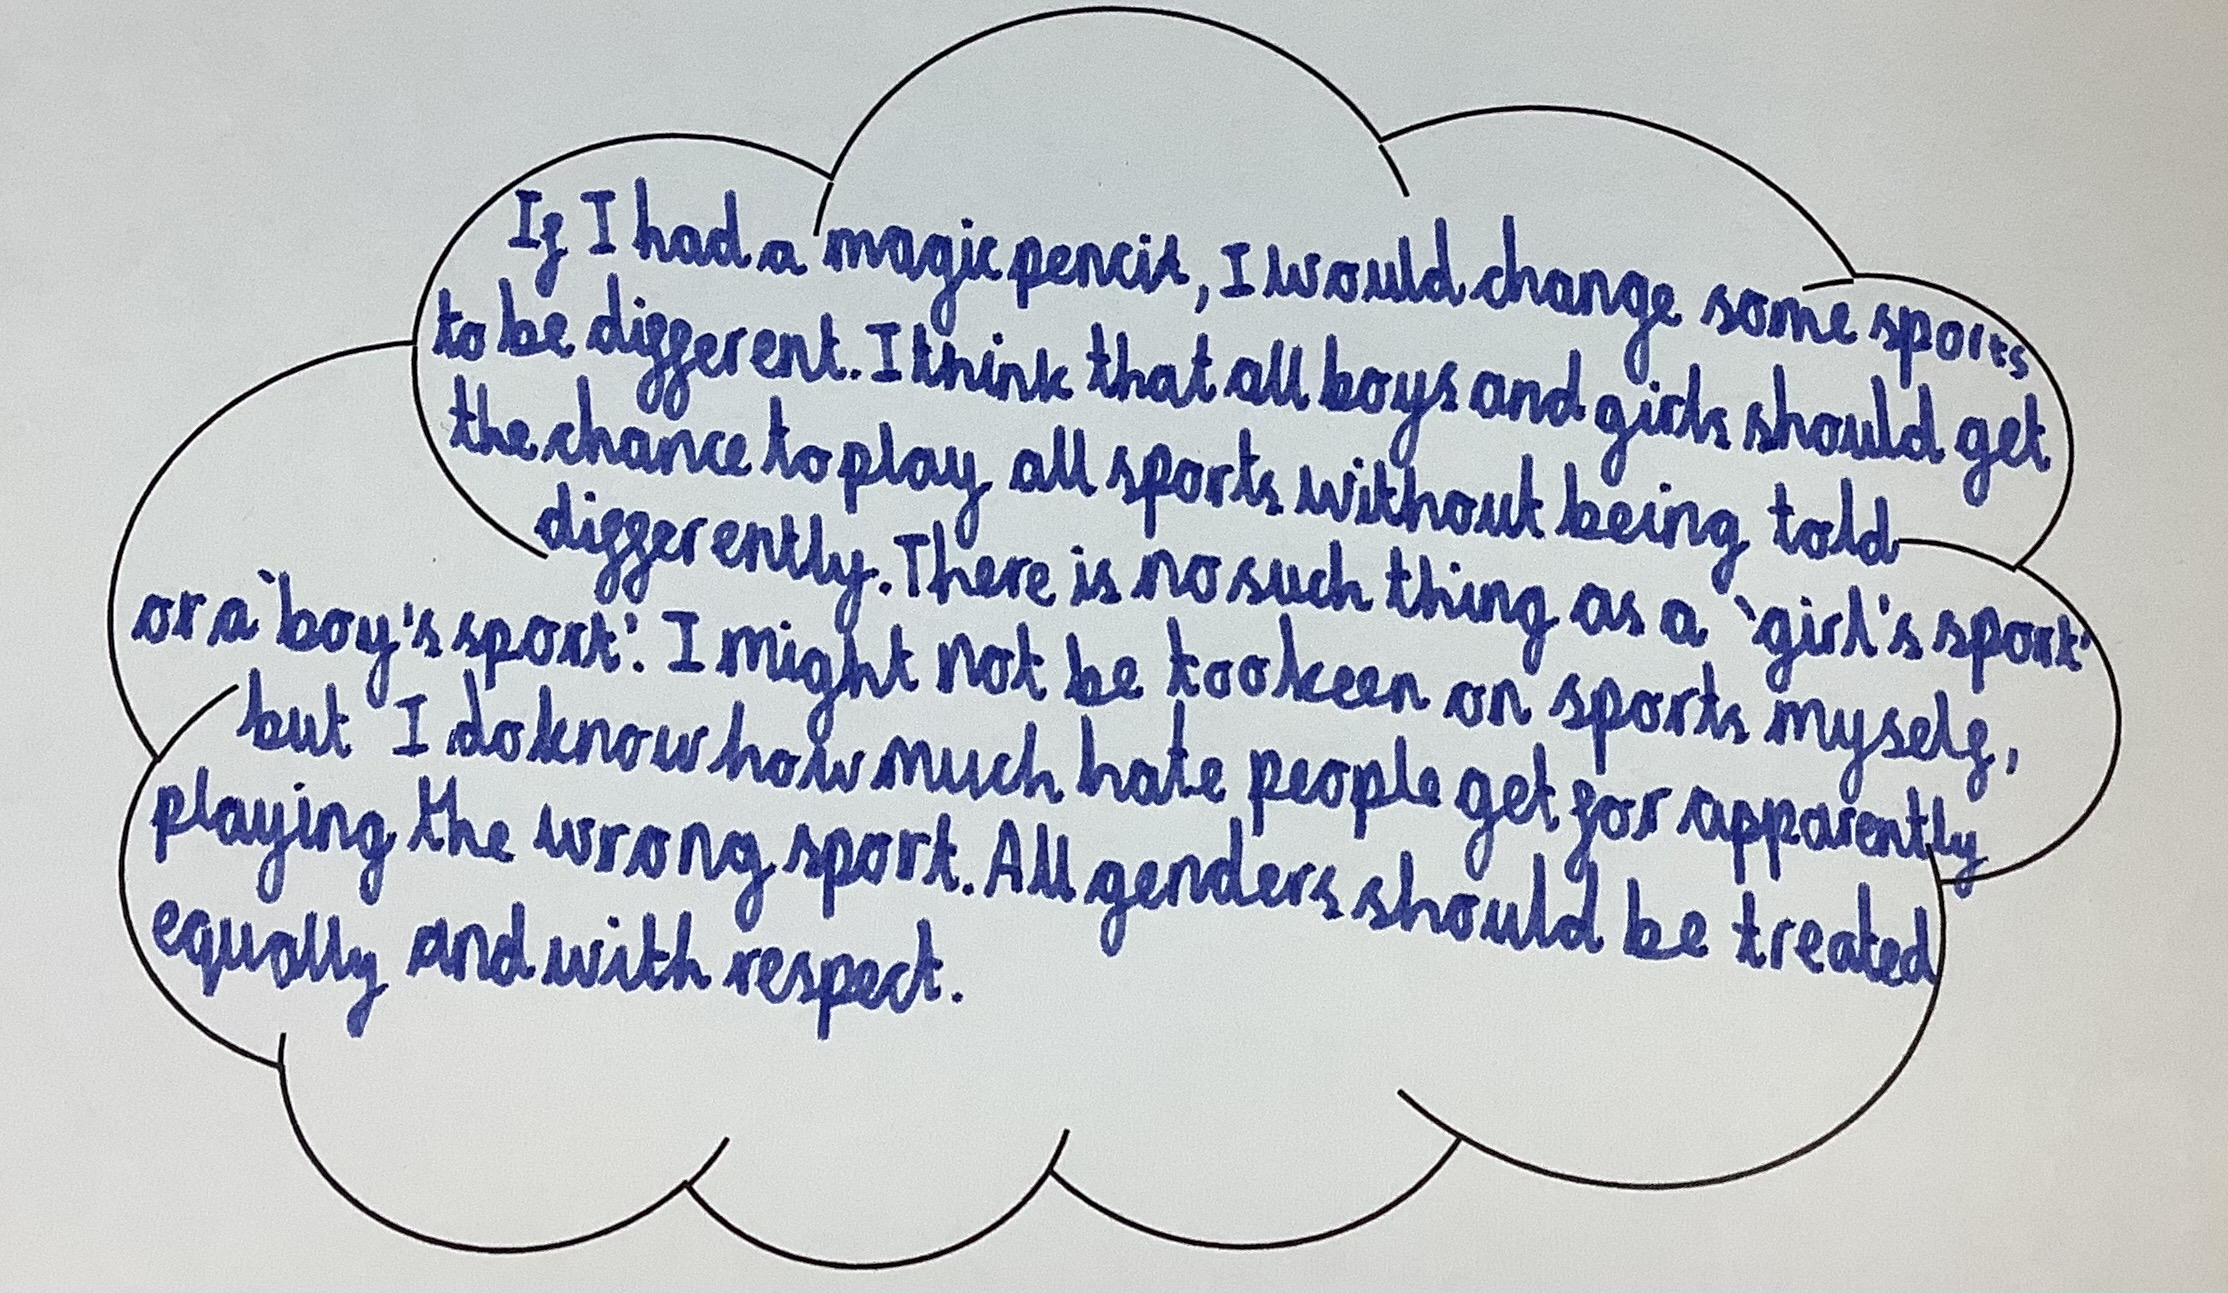 If I had a magic pencil, I would change some sports
to be different. I think that all boys and girls should get
the chance to play all sports without being told
differently. There is no such thing as a 'girl's sport'
or a 'boy's sport'. I might not be too keen on sports myself,
but I do know how much hate people get for apparently
playing the wrong sport. All genders should be treated
equally and with respect.